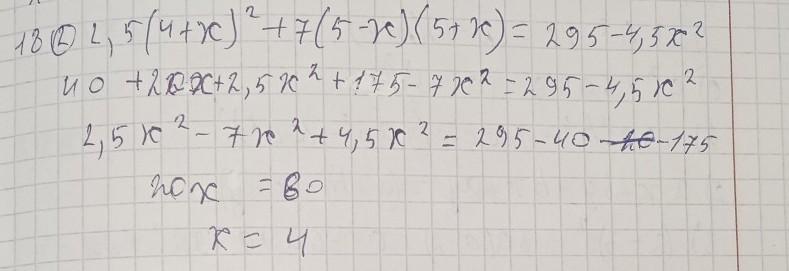 18② 2,5(4+x)² + 7(5-x)(5+x) = 295-4,5x²
40 + 20x + 2,5x² + 175 - 7x² = 295 - 4,5x²
2,5x² - 7x² + 4,5x² = 295 - 40 - 175
20x = 80
x = 4